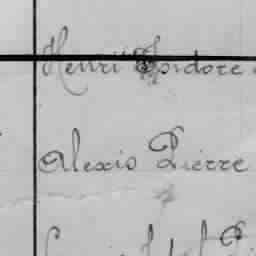 Henri Isidore
Alexis Pierre